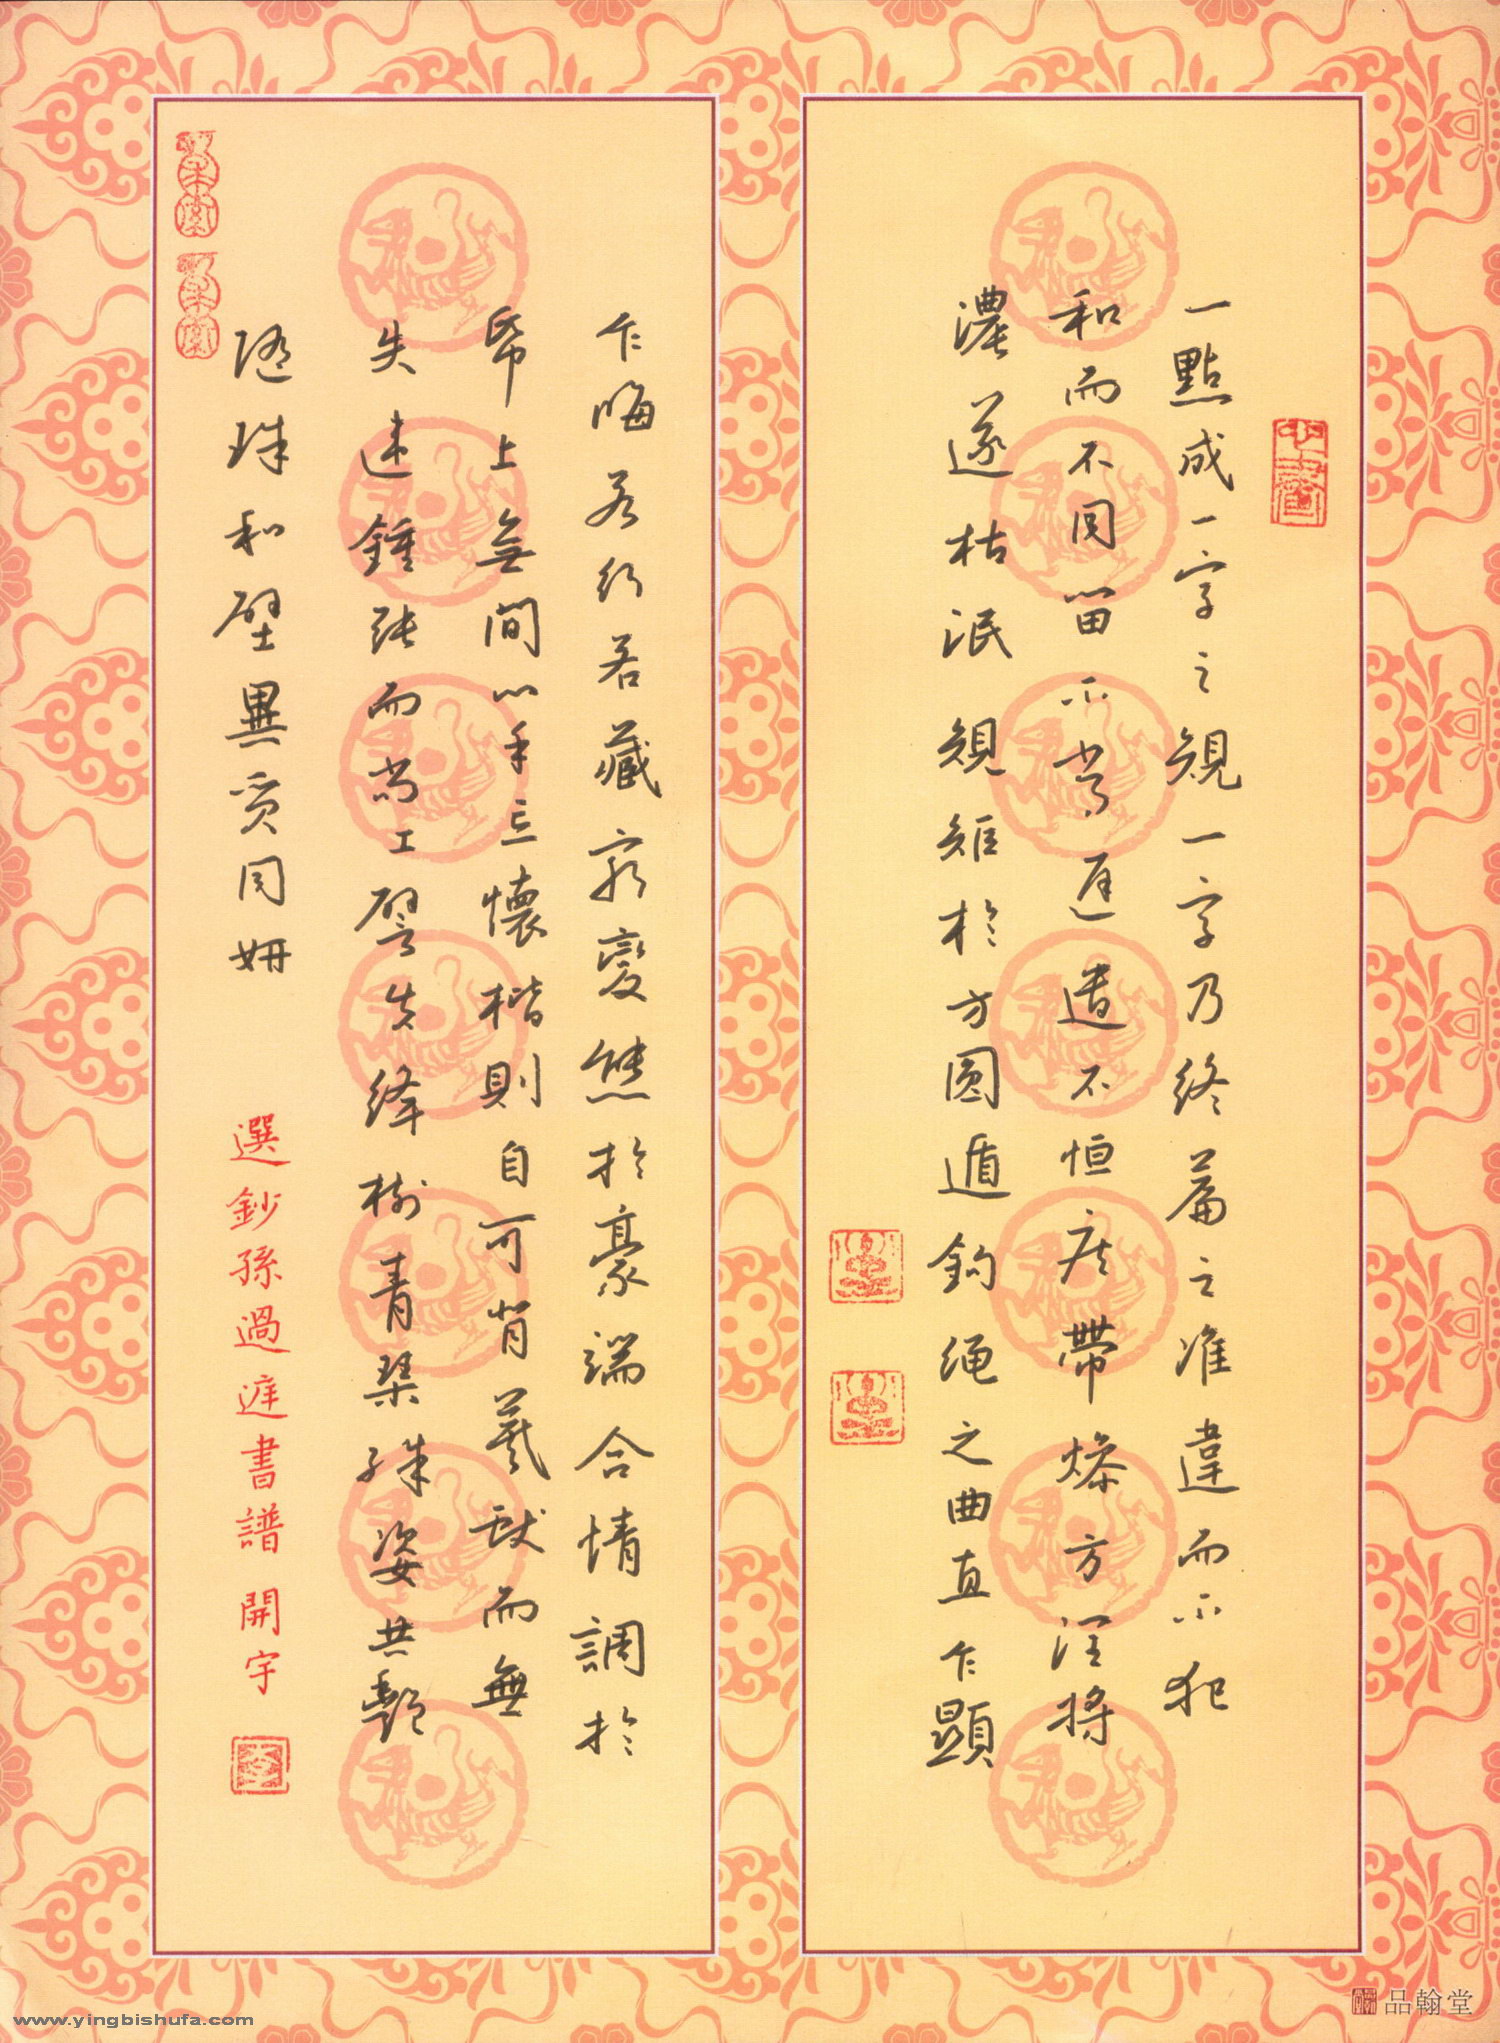 一點成一字之規一字乃終篇之准違而不犯
和而不同留不常遲遣不恒疾帶燥方潤將
濃遂枯泯規矩於方圓遁鈎繩之曲直乍顯
乍晦若行若藏窮變態於豪端合情調於
帋上無間心手忘懷楷則自可背羲獻而無
失違鍾張而尚工譬夫絳樹青琴殊姿共艷
隋珠和璧異質同妍
選鈔孫過庭書譜 開宇
www.yingbishufa.com
品翰堂